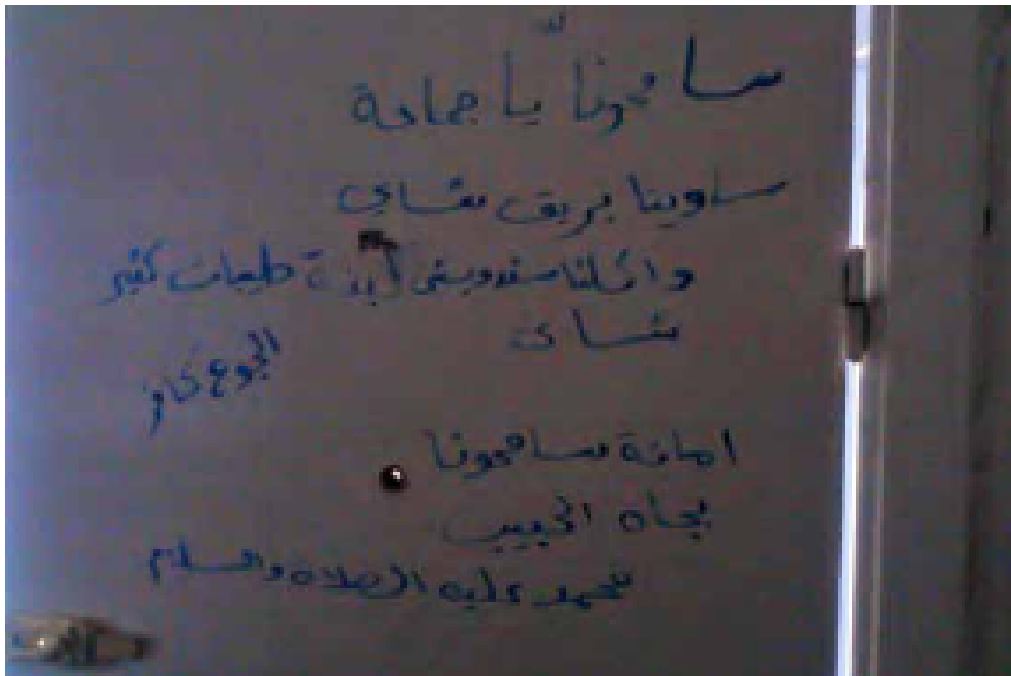 سامحونا يا جماعة
ساوينا بريق شاي
واكلنا سندويش لبنة طيبات كثير
شاي
الجوع كافر
امانة سامحونا
بجاه الحبيب
محمد عليه الصلاة والسلام